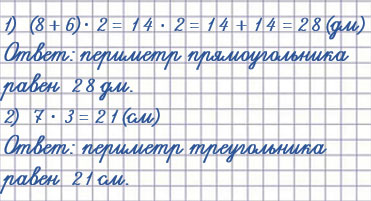 1) (8 + 6) · 2 = 14 · 2 = 14 + 14 = 28 (дм)
Ответ: периметр прямоугольника
равен 28 дм.
2) 7 · 3 = 21 (см)
Ответ: периметр треугольника
равен 21 см.